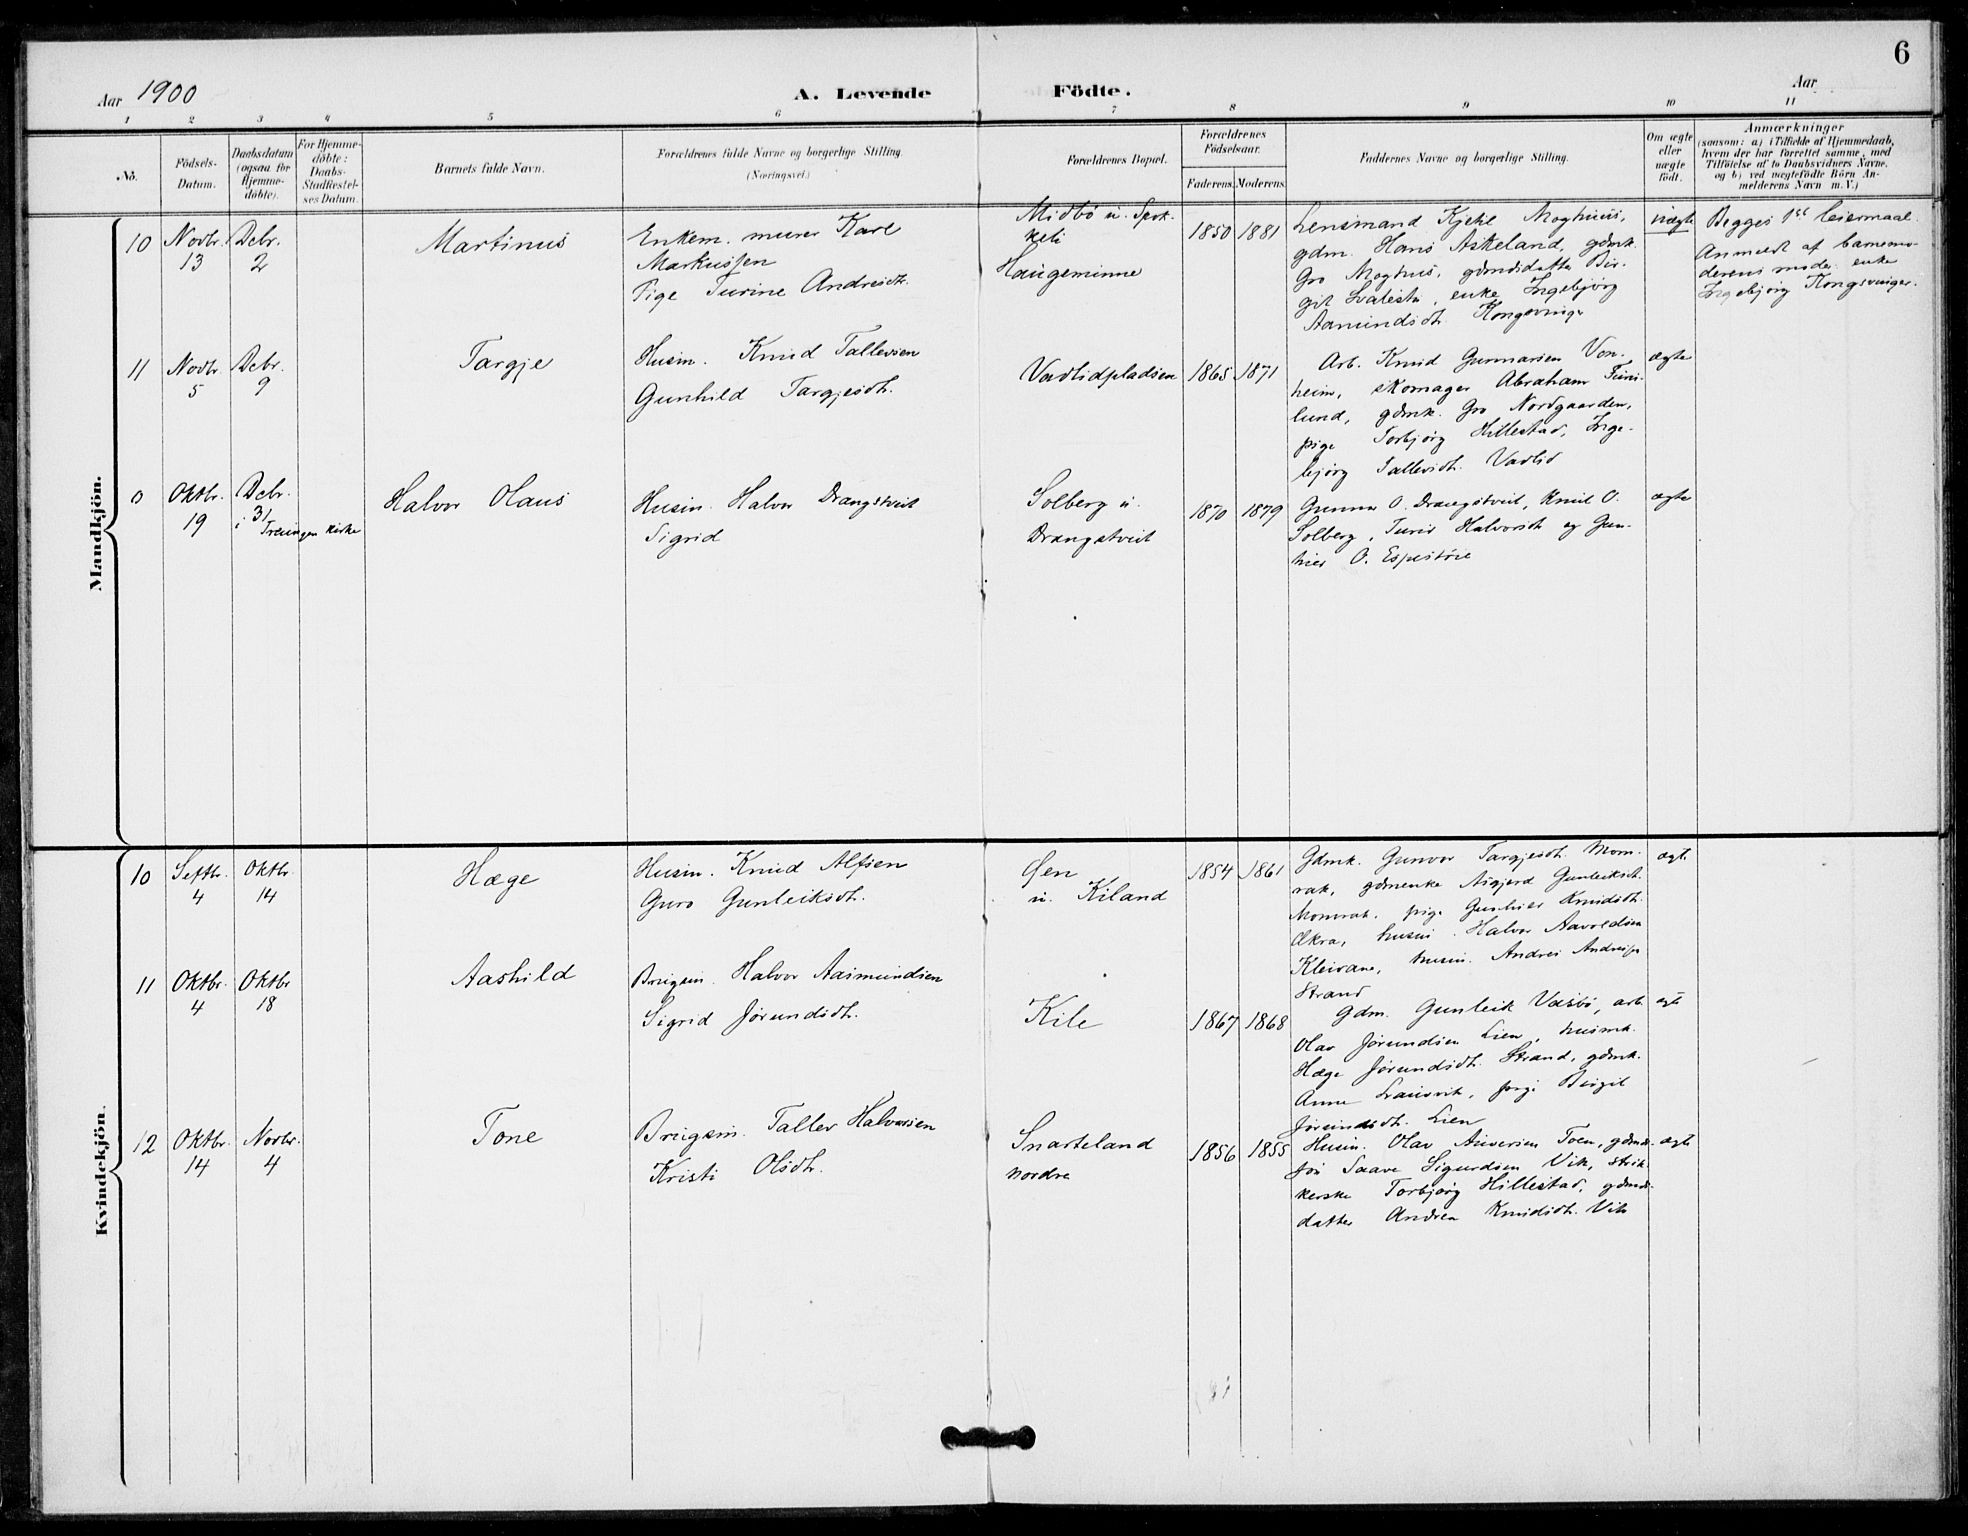 6
Aar 1900
A. Levende Födte.
Aar
1 2 3 4 5 6 7 8 9 10 11
No.
Födsels-
Datum.
Daabsdatum
(ogsaa for
Hjemme-
döbte).
For Hjemme-
döbte:
Daabs-
Stadfæstel-
ses Datum.
Barnets fulde Navn.
Forældrenes fulde Navne og borgerlige Stilling.
(Næringsvei.)
Forældrenes Bopæl.
Forældrenes
Födselsaar.
Faderens. Moderens.
Faddernes Navne og borgerlige Stilling.
Om ægte
eller
uægte
födt.
Anmærkninger
(saasom: a) i Tilfælde af Hjemmedaab,
hvem der har forrettet samme, med
Tilföielse af to Daabsvidners Navne,
og b) ved uægtefödte Börn An-
melderens Navn m. V.)
Mandkjön.
10
Novbr.
13
Dcbr.
2
Martinus
Enkem. murer Karl
Markussen
Pige Turine Andresdtr.
Midbö u. Spok-
keli
Haugeminne
1850 1881
Lensmand Kjetil Moghus,
gdm. Hans Askeland, gdmk.
Gro Moghus, gdmdsdatter Bir-
git , enke Ingebjörg
Aamundsdtr. Kongsvinger
uægte
Begges 1ste leiermaal
Anmeldt af barnemo-
derens moder enke
Ingebjörg Kongsvinger.
11
Novbr.
5
Dcbr.
9
Targje
Husm. Knud Tallevsen
Gunhild Targjesdtr.
Vadlidpladsen
1865 1871
Arb. Knud Gunnarsen Von-
heim, skomager Abraham
lund, gdmk. Gro Nordgaarden,
pige Torbjörg Hillestad, Inge-
björg Tallevsdtr. Vadlid
ægte
0
Oktbr.
19
Dcbr.
31
i Treungen kirke
Halvor Olaus
Husm. Halvor Drangstveit
Sigrid
Solberg u.
Drangstveit
1870 1879
Gunnar O. Drangstveit, Knut O.
Solberg, Turid Halvorsdtr og Gun-
hild O. Espestöie
ægte
Kvindekjön.
10
Septbr.
4
Oktbr.
14
Hæge
Husm. Knud Alfsen
Guro Gunleiksdtr.
Öen
u. Kiland
1854 1861
Gdmk. Gunvor Targjesdtr. Mom-
rak, gdmenke Asgjerd Gunleiksdt.
Momrak, pige Gunhild Knudsdtr.
Ækra, husm. Halvor Aavoldsen
Kleivane, husm. Andres Andresen
Strand
ægte
11
Oktbr.
4
Oktbr
18
Aashild
Brugsm. Halvor Aasmundsen
Sigrid Jörundsdtr.
Kile
1867 1868
Gdm. Gunleik Vasbö, arb.
Olav Jörundsen Lien, husmk.
Hæge Jörundsdtr. Strand, gdmk.
Anne , pige Birgit
Jörundsdtr. Lien
ægte
12
Oktbr.
14
Novbr.
4
Tone
Brugsm. Tallev Halvorsen
Kristi Olsdtr.
Snarteland
nordre
1856 1855
Husm. Olav Aaversen Toen, gdmds-
sön Saave Sigurdsen Vik, strik-
kerske Torbjörg Hillestad, gdmds-
datter Andrea Knudsdtr. Vik
ægte